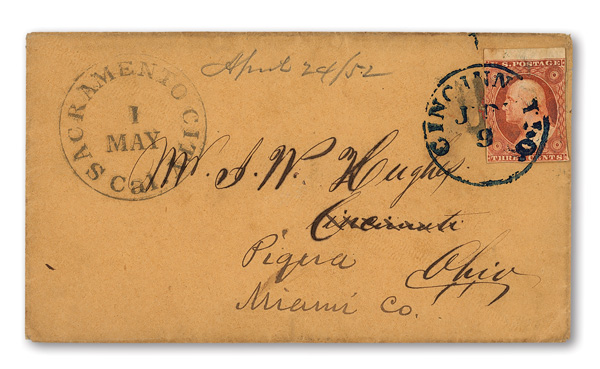 April 24/52
SACRAMENTO CITY
1
MAY
Cal.
U.S. POSTAGE
THREE CENTS
CINCINNATI O.
9
Mr. A. W. Hughes
Cincinnati
Piqua
Ohio
Miami Co.